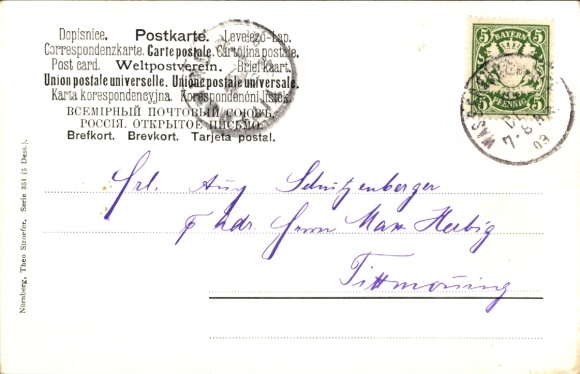 Dopisnice. Postkarte. Levelező-Lap.
Correspondenzkarte. Carte postale. Cartolina postale.
Post card. Weltpostverein. Briefkaart.
Union postale universelle. Unione postale universale.
Karta korespondencyjna. Korespondenční lístek.
ВСЕМІРНЫЙ ПОЧТОВЫЙ СОЮЗЪ.
РОССІЯ. ОТКРЫТОЕ ПИСЬМО.
Brefkort. Brevkort. Tarjeta postal.
5 BAYERN 5
5 PFENNIG 5
WAS
7-8
03
Frl. Aug Schnitzenberger
Adr. Herrn Max Herbig
Tittmoning
Nürnberg, Theo Stroefer, Serie 351 (5 Dess.).